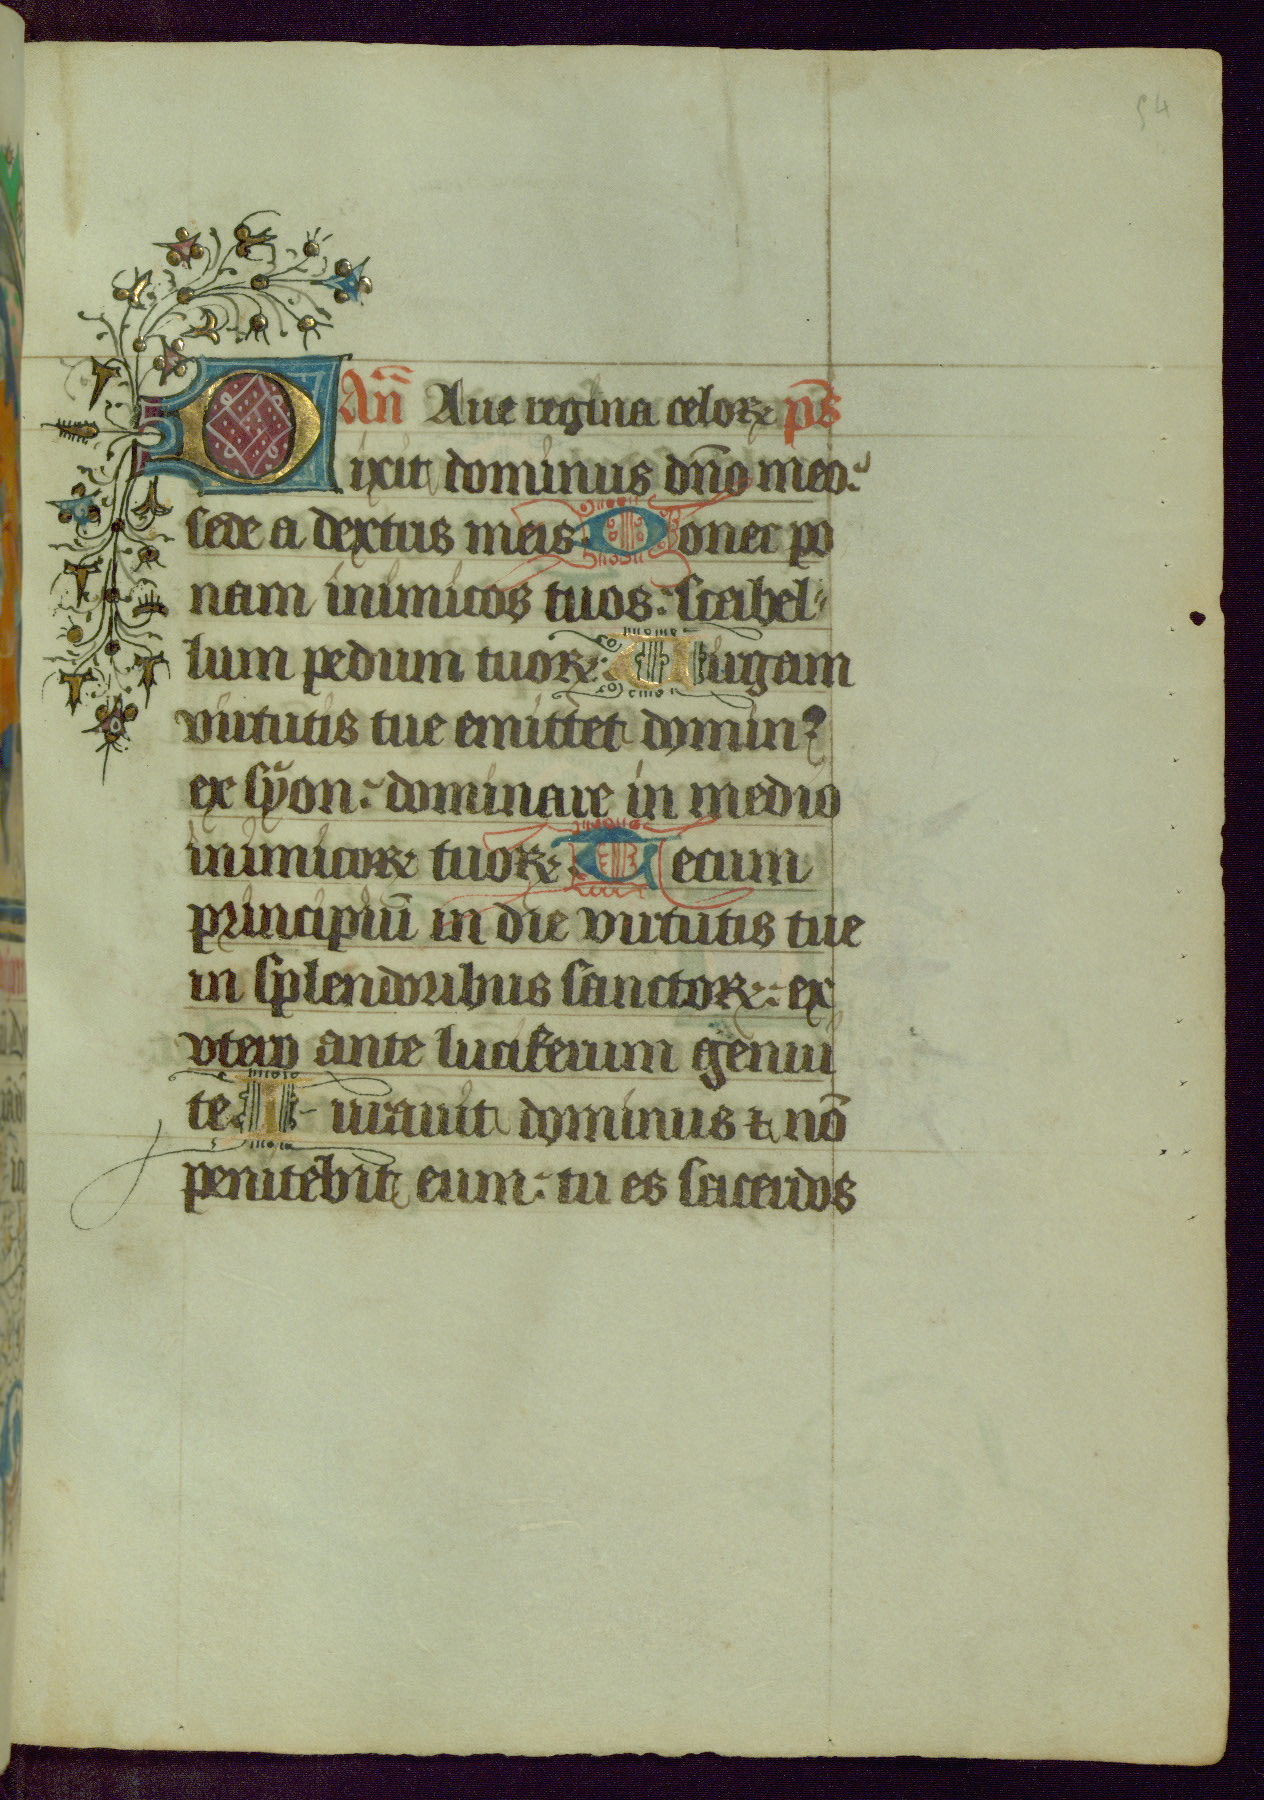 94
An̄ Aue regina celoꝝ ps̄
Dixit dominus dn̄o meo:
sede a dextris meis. Donec po
nam inimicos tuos: scabel-
lum pedum tuoꝝ: Uirgam
virtutis tue emittet dominꝰ
ex syon: dominare in medio
inimicoꝝ tuoꝝ: Tecum
principiū in die virtutis tue
in splendoribus sanctoꝝ: ex
vtero ante luciferum genui
te. Iurauit dominus ⁊ nō
penitebit eum: tu es sacerdos